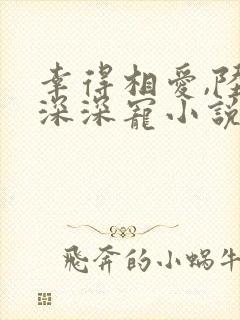 幸得相愛,陸
深深寵小說
飛奔的小蝸牛